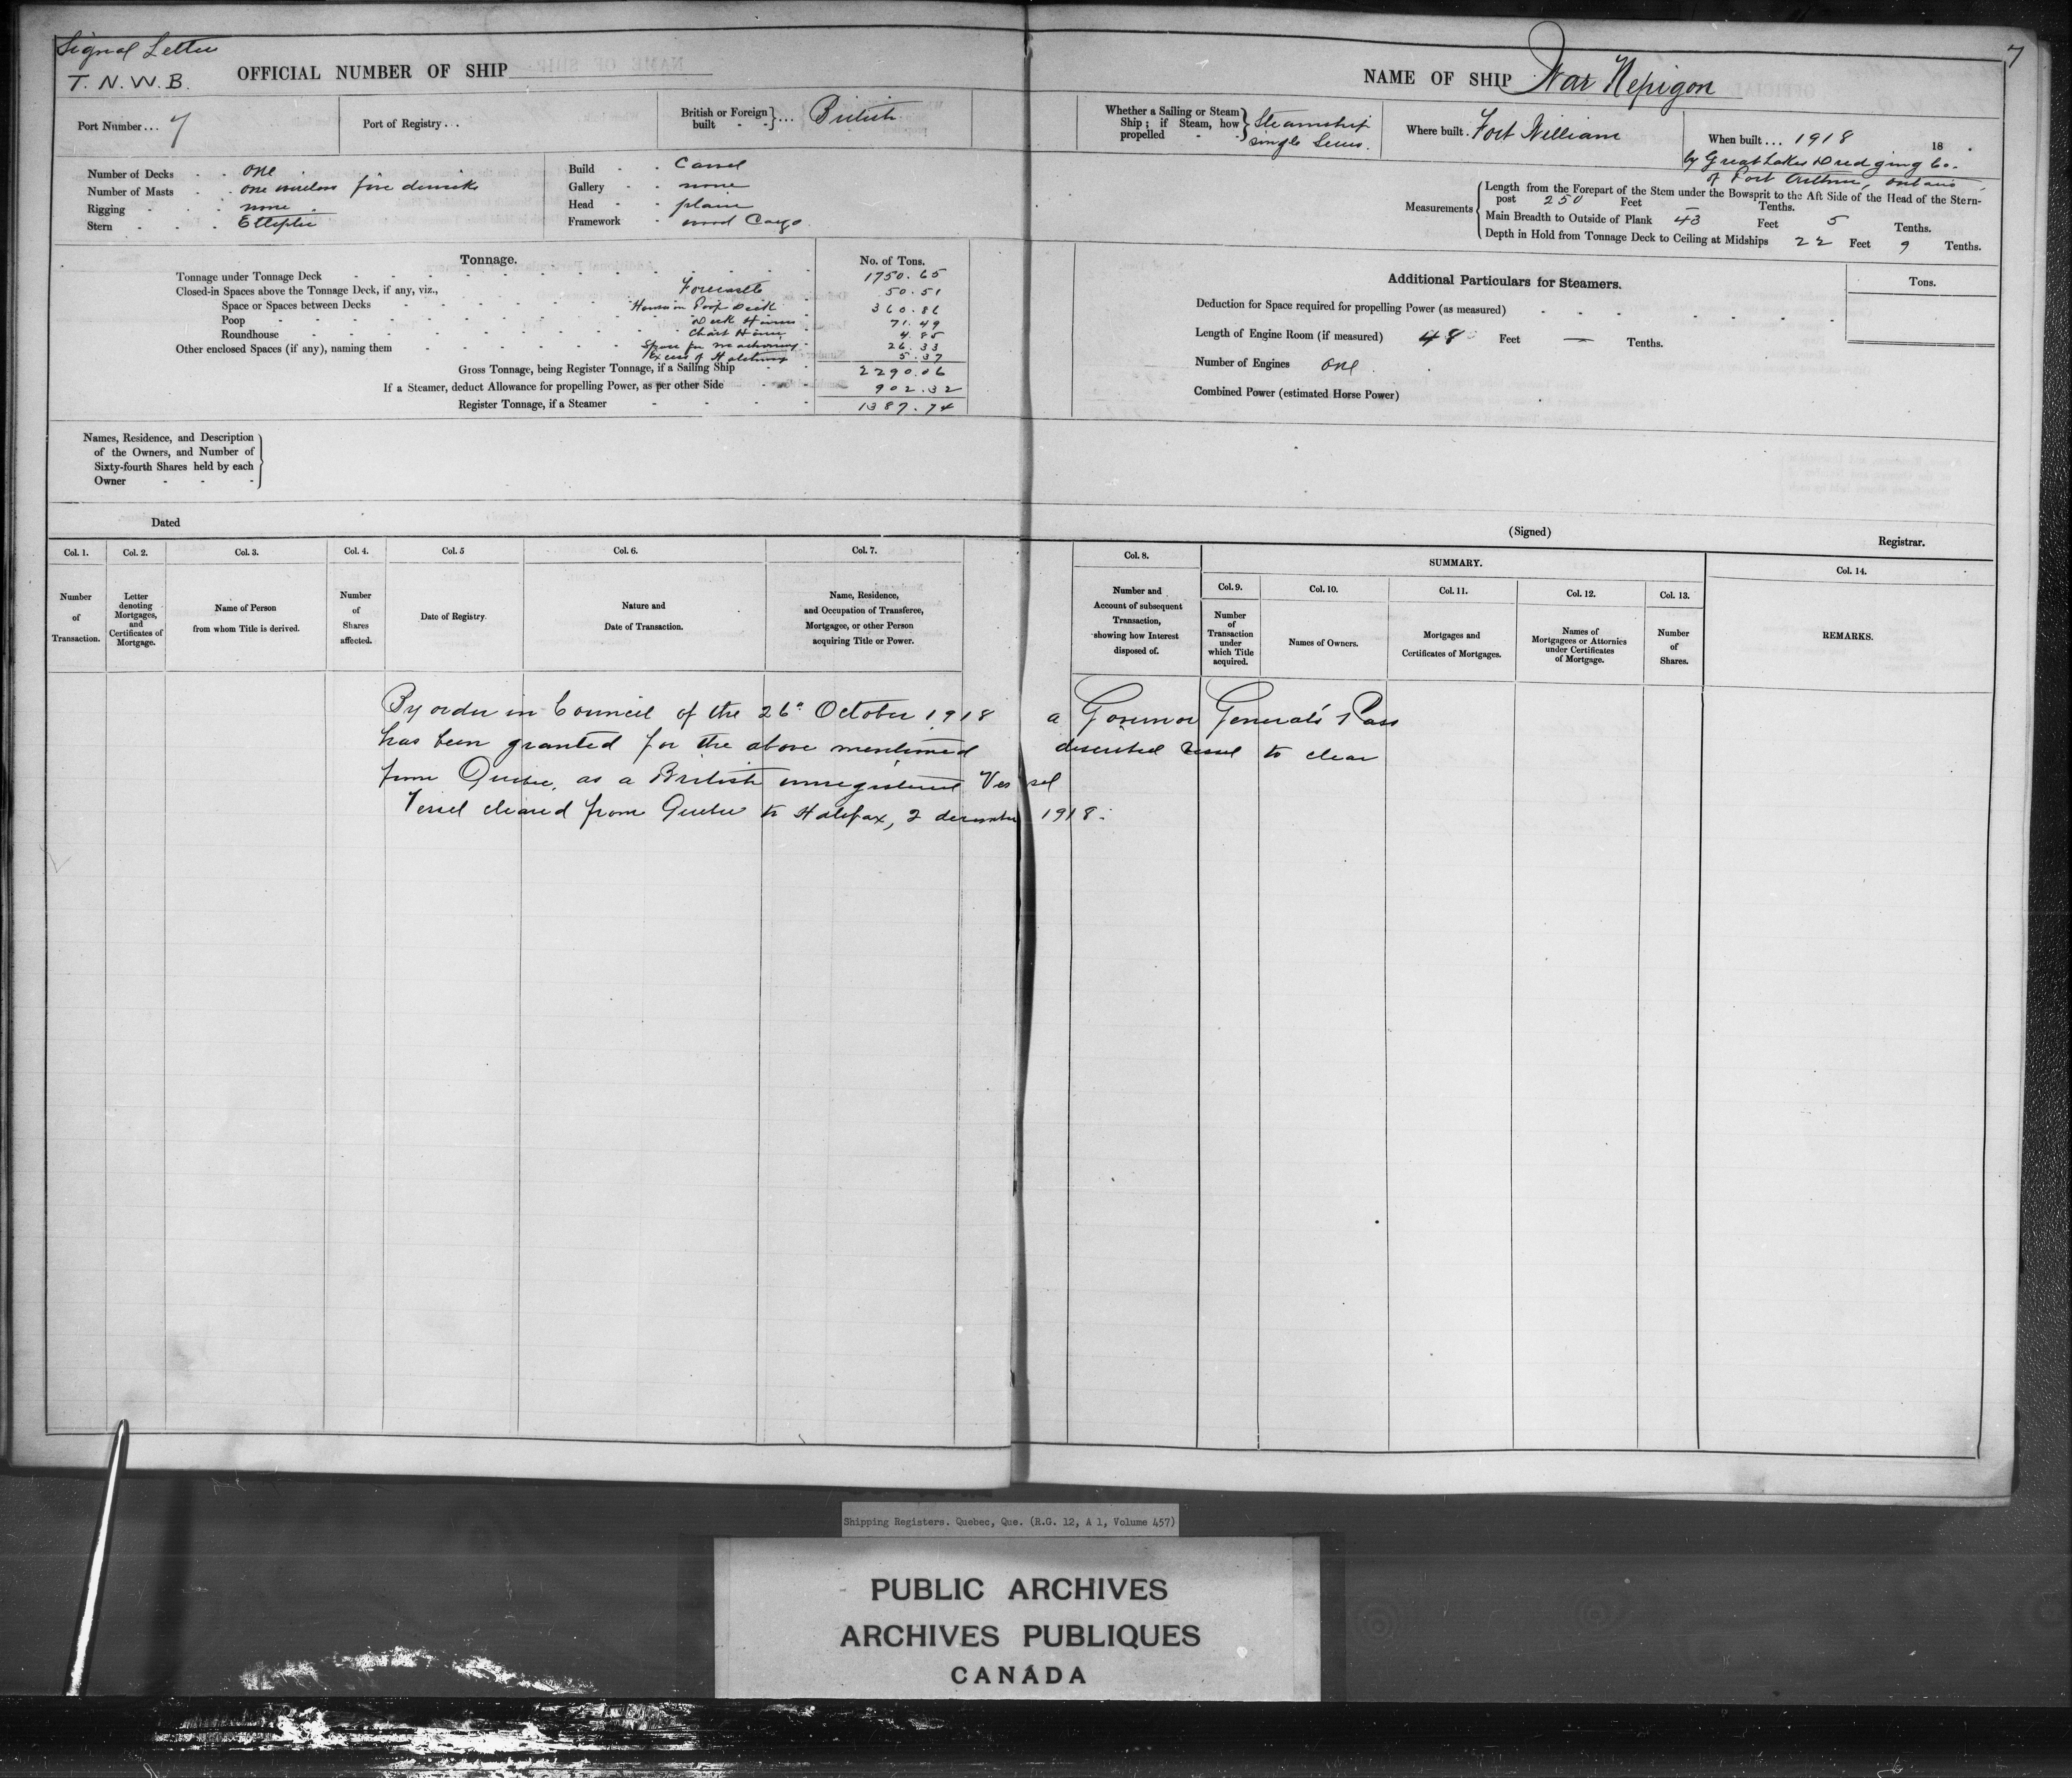 Signal Letter
T. N. W. B.
OFFICIAL NUMBER OF SHIP
NAME OF SHIP War Nepigon
7
Port Number... 7
Port of Registry...
British or Foreign built }... British
Whether a Sailing or Steam Ship; if Steam, how propelled } Steamship single Screw.
Where built. Fort William
When built... 1918 18
by Great Lakes Dredging Co.
of Port Arthur, Ontario
Number of Decks - - one
Number of Masts - - one five derricks
Rigging - - - none
Stern - - - Elliptic
Build - - Carvel
Gallery - - none
Head - - plain
Framework - wood Cargo
Measurements
Length from the Forepart of the Stem under the Bowsprit to the Aft Side of the Head of the Stern-
post 250 Feet — Tenths.
Main Breadth to Outside of Plank 43 Feet 5 Tenths.
Depth in Hold from Tonnage Deck to Ceiling at Midships 22 Feet 9 Tenths.
Tonnage. No. of Tons.
Tonnage under Tonnage Deck 1750.65
Closed-in Spaces above the Tonnage Deck, if any, viz., Forecastle 50.51
Space or Spaces between Decks Poop Deck 360.86
Poop Deck Houses 71.49
Roundhouse Chart House 4.85
Other enclosed Spaces (if any), naming them Space for machinery 26.33
Excess of Hatchway 5.37
Gross Tonnage, being Register Tonnage, if a Sailing Ship 2290.06
If a Steamer, deduct Allowance for propelling Power, as per other Side 902.32
Register Tonnage, if a Steamer 1387.74
Additional Particulars for Steamers.
Tons.
Deduction for Space required for propelling Power (as measured)
Length of Engine Room (if measured) 48 Feet — Tenths.
Number of Engines one
Combined Power (estimated Horse Power)
Names, Residence, and Description
of the Owners, and Number of
Sixty-fourth Shares held by each
Owner
Dated
(Signed)
Registrar.
Col. 1. Col. 2. Col. 3. Col. 4. Col. 5 Col. 6. Col. 7.
Number of Transaction.
Letter denoting Mortgages, and Certificates of Mortgage.
Name of Person from whom Title is derived.
Number of Shares affected.
Date of Registry.
Nature and Date of Transaction.
Name, Residence, and Occupation of Transferee, Mortgagee, or other Person acquiring Title or Power.
Col. 8.
Number and Account of subsequent Transaction, showing how Interest disposed of.
SUMMARY.
Col. 9. Col. 10. Col. 11. Col. 12. Col. 13.
Number of Transaction under which Title acquired.
Names of Owners.
Mortgages and Certificates of Mortgages.
Names of Mortgagees or Attornies under Certificates of Mortgage.
Number of Shares.
Col. 14.
REMARKS.
By order in Council of the 26th October 1918 a Governor General's Pass
has been granted for the above mentioned described vessel to clear
from Quebec, as a British unregistered Vessel
Vessel cleared from Quebec to Halifax, 2 december 1918.
Shipping Registers. Quebec, Que. (R.G. 12, A 1, Volume 457)
PUBLIC ARCHIVES
ARCHIVES PUBLIQUES
CANADA